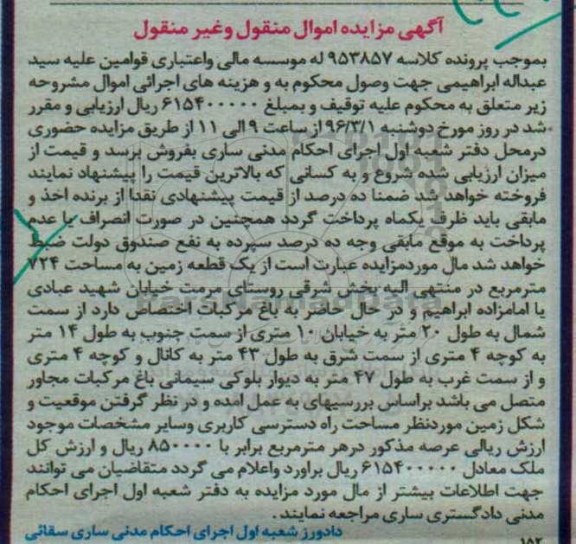 آگهی مزایده اموال منقول وغیر منقول
بموجب پرونده کلاسه ۹۵۳۸۵۷ له موسسه مالی واعتباری قوامین علیه سید
عبداله ابراهیمی جهت وصول محکوم به و هزینه های اجرائی اموال مشروحه
زیر متعلق به محکوم علیه توقیف و بمبلغ ۶۱۵۴۰۰۰۰۰ ریال ارزیابی و مقرر
شد در روز مورخ دوشنبه ۹۶/۳/۱ از ساعت ۹ الی ۱۱ از طریق مزایده حضوری
درمحل دفتر شعبه اول اجرای احکام مدنی ساری بفروش برسد و قیمت از
میزان ارزیابی شده شروع و به کسانی که بالاترین قیمت را پیشنهاد نمایند
فروخته خواهد شد ضمنا ده درصد از قیمت پیشنهادی نقدا از برنده اخذ و
مابقی باید ظرف یکماه پرداخت گردد همچنین در صورت انصراف یا عدم
پرداخت به موقع مابقی وجه ده درصد سپرده به نفع صندوق دولت ضبط
خواهد شد مال موردمزایده عبارت است از یک قطعه زمین به مساحت ۷۲۴
مترمربع در منتهی الیه بخش شرقی روستای مرمت خیابان شهید عبادی
یا امامزاده ابراهیم و در حال حاضر به باغ مرکبات اختصاص دارد از سمت
شمال به طول ۲۰ متر به خیابان ۱۰ متری از سمت جنوب به طول ۱۴ متر
به کوچه ۴ متری از سمت شرق به طول ۴۳ متر به کانال و کوچه ۴ متری
و از سمت غرب به طول ۴۷ متر به دیوار بلوکی سیمانی باغ مرکبات مجاور
متصل می باشد براساس بررسیهای به عمل امده و در نظر گرفتن موقعیت و
شکل زمین موردنظر مساحت راه دسترسی کاربری وسایر مشخصات موجود
ارزش ریالی عرصه مذکور درهر مترمربع برابر با ۸۵۰۰۰۰ ریال و ارزش کل
ملک معادل ۶۱۵۴۰۰۰۰۰ ریال براورد واعلام می گردد متقاضیان می توانند
جهت اطلاعات بیشتر از مال مورد مزایده به دفتر شعبه اول اجرای احکام
مدنی دادگستری ساری مراجعه نمایند.
دادورز شعبه اول اجرای احکام مدنی ساری سقائی
۱۵۲